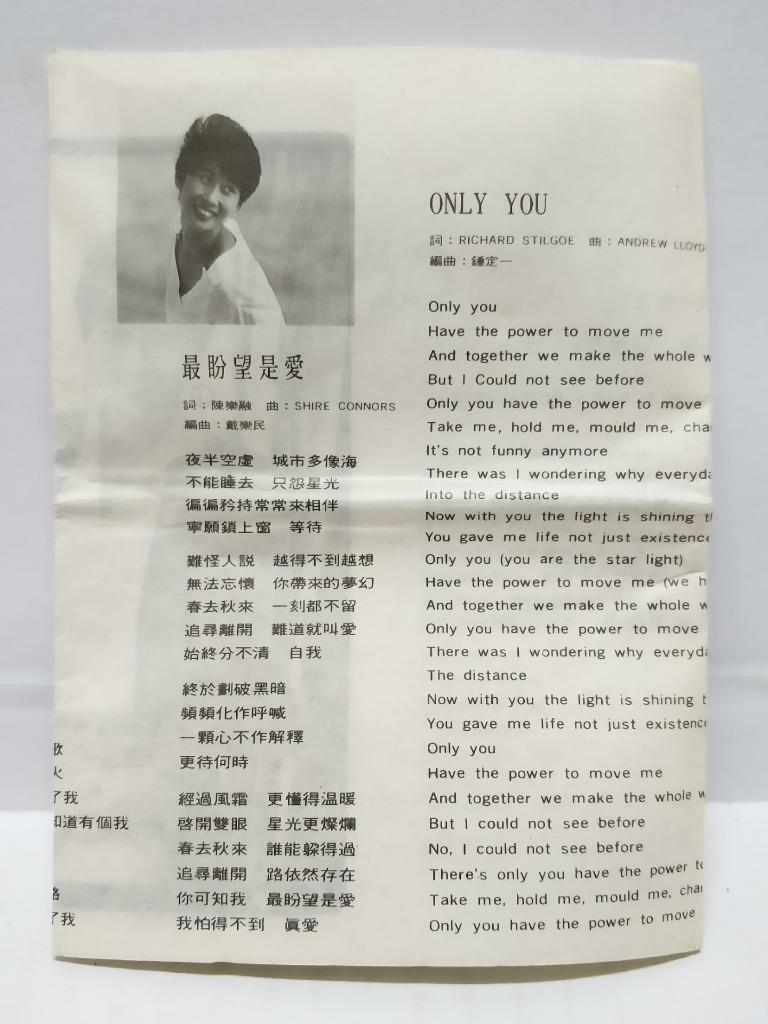 歌
火
了我
知道有個我
路
了我
最盼望是愛
詞：陳樂融　曲：SHIRE CONNORS
編曲：戴樂民
夜半空虛　城市多像海
不能睡去　只怨星光
徧徧矜持常常來相伴
寧願鎖上窗　等待
難怪人説　越得不到越想
無法忘懷　你帶來的夢幻
春去秋來　一刻都不留
追尋離開　難道就叫愛
始終分不清　自我
終於劃破黑暗
頻頻化作呼喊
一顆心不作解釋
更待何時
經過風霜　更懂得温暖
啓開雙眼　星光更燦爛
春去秋來　誰能躲得過
追尋離開　路依然存在
你可知我　最盼望是愛
我怕得不到　眞愛
ONLY YOU
詞：RICHARD STILGOE　曲：ANDREW LLOYD
編曲：鍾定一
Only you
Have the power to move me
And together we make the whole w
But I Could not see before
Only you have the power to move
Take me, hold me, mould me, cha
It's not funny anymore
There was I wondering why everyda
Into the distance
Now with you the light is shining t
You gave me life not just existence
Only you (you are the star light)
Have the power to move me (we h
And together we make the whole w
Only you have the power to move
There was I wondering why everyda
The distance
Now with you the light is shining t
You gave me life not just existence
Only you
Have the power to move me
And together we make the whole w
But I could not see before
No, I could not see before
There's only you have the power to
Take me, hold me, mould me, chan
Only you have the power to move